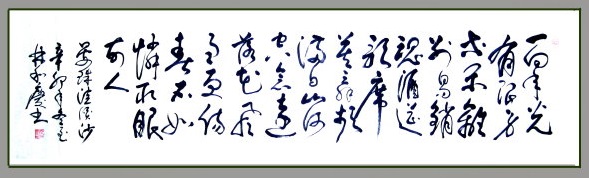 一向年光
有限身
等闲離
别易銷
魂酒筵
歌席
莫辞频
满目山河
空念遠
落花風
雨更傷
春不如
憐取眼
前人
晏殊浣溪沙
辛卯年冬